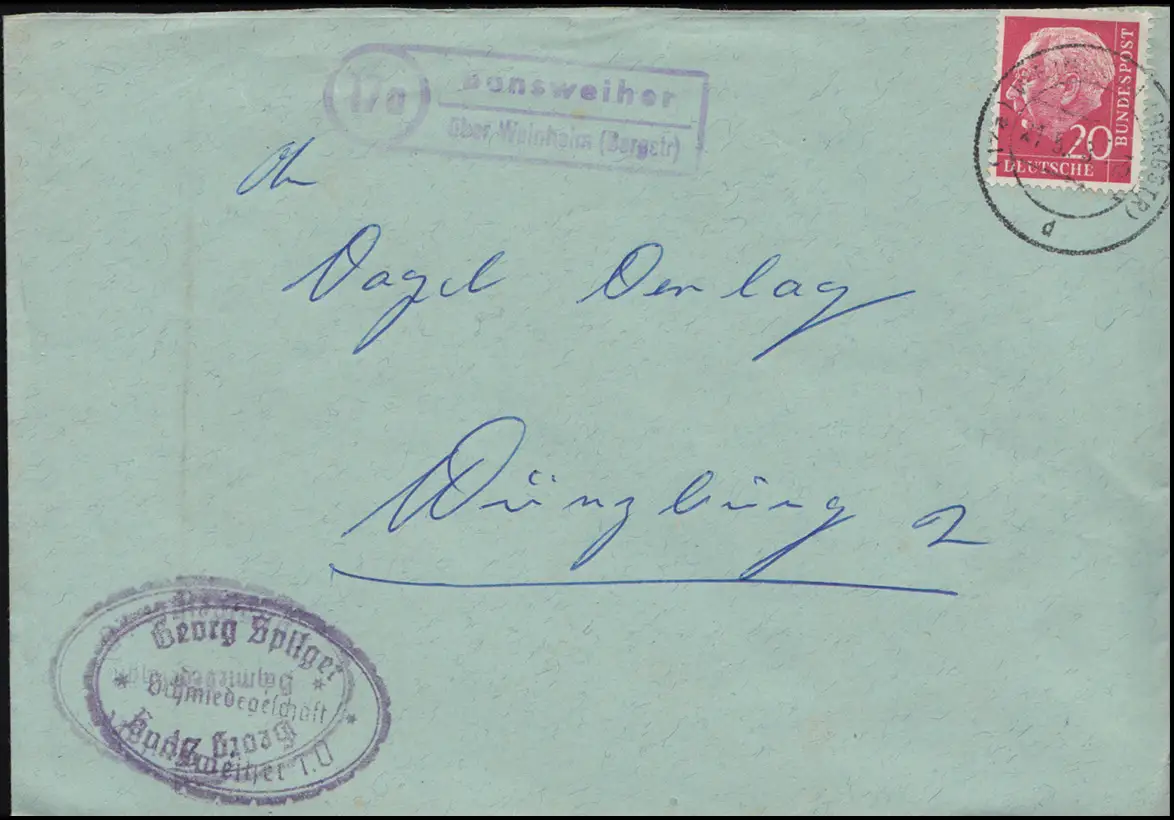 17a
Bonsweiher
über Weinheim (Bergstr)
20
DEUTSCHE
BUNDESPOST
d
An
Vogel Verlag
Würzburg 2
Georg Spilger
Schmiedegeschäft
Bonsweiher i. O